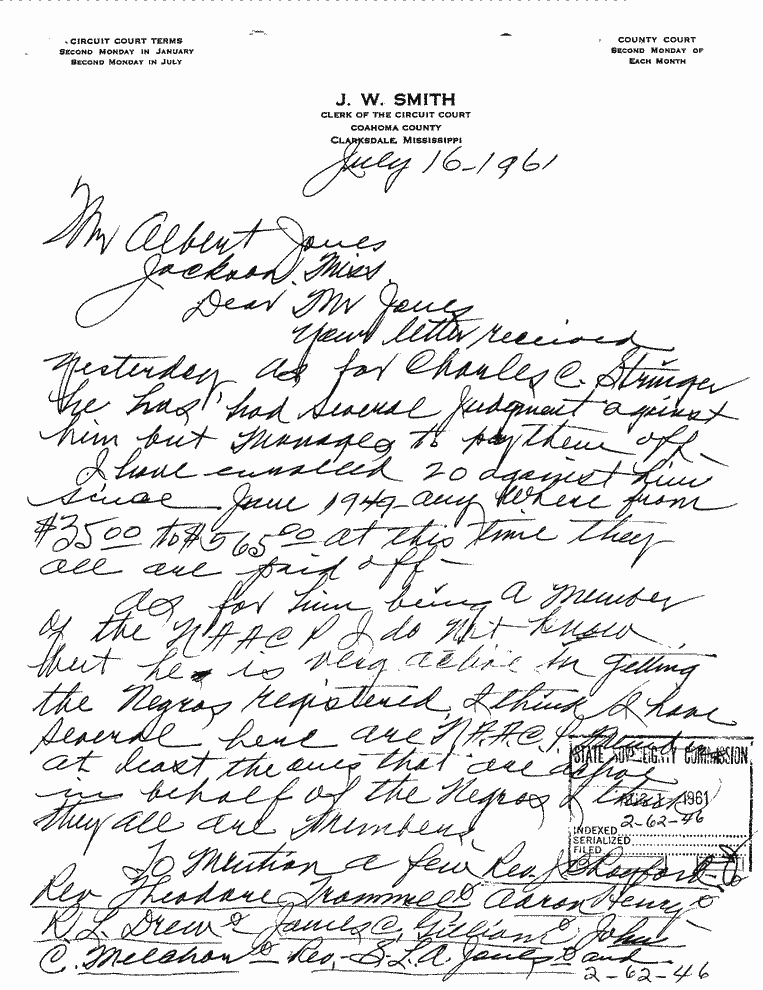 CIRCUIT COURT TERMS
SECOND MONDAY IN JANUARY
SECOND MONDAY IN JULY
COUNTY COURT
SECOND MONDAY OF
EACH MONTH
J. W. SMITH
CLERK OF THE CIRCUIT COURT
COAHOMA COUNTY
CLARKSDALE, MISSISSIPPI
July 16-1961
Mr Albert Jones
Jackson. Miss.
Dear Mr Jones
Your letter received
yesterday, as for Charles C. Stringer
he has had several judgment against
him but managed to pay them off-
I have enrolled 20 against him
since June 1949- any where from
$35 00 to $565 00 at this time they
all are paid off-
as for him being a member
of the NAACP I do not know
but he is very active in getting
the Negros registered, I think I have
several here are N.A.A.C.P.
at least the ones that are active
in behalf of the Negros I think
they all are members
STATE SOVEREIGNTY COMMISSION
1961
2-62-46
INDEXED
SERIALIZED
FILED
To mention a few Rev. J.
Rev Theodore Trammell Aaron Henry
R. L. Drew James C. Gilliam John
C. Melchor Rev. S.L.A. Jones and
2-62-46